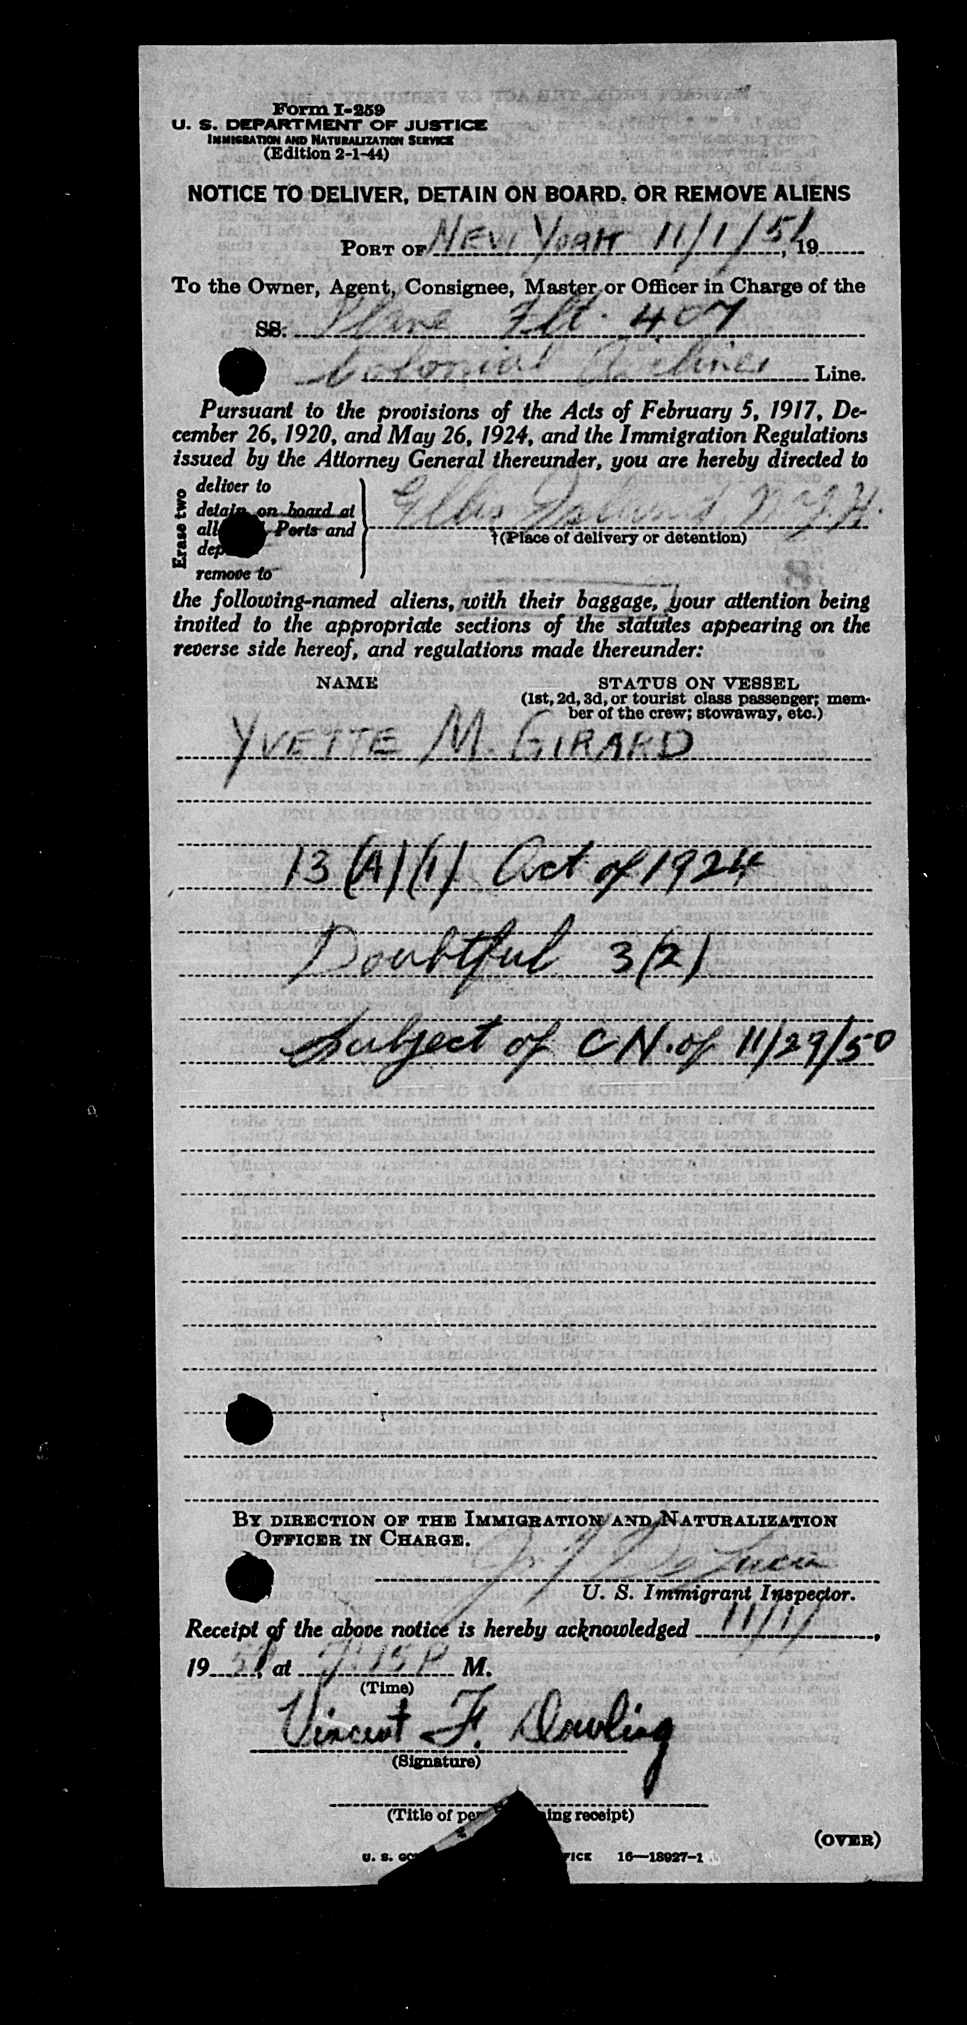 Form I-259
U. S. DEPARTMENT OF JUSTICE
IMMIGRATION AND NATURALIZATION SERVICE
(Edition 2-1-44)
NOTICE TO DELIVER, DETAIN ON BOARD, OR REMOVE ALIENS
PORT OF NEW YORK 11/1/51, 19
To the Owner, Agent, Consignee, Master or Officer in Charge of the
SS. Plane Flt. 407
Colonial Airlines Line.
Pursuant to the provisions of the Acts of February 5, 1917, De-
cember 26, 1920, and May 26, 1924, and the Immigration Regulations
issued by the Attorney General thereunder, you are hereby directed to
Erase two
deliver to
detain on board at
all Ports and
remove to
Ellis Island N.Y.H.
†(Place of delivery or detention)
the following-named aliens, with their baggage, your attention being
invited to the appropriate sections of the statutes appearing on the
reverse side hereof, and regulations made thereunder:
NAME
STATUS ON VESSEL
(1st, 2d, 3d, or tourist class passenger; mem-
ber of the crew; stowaway, etc.)
YVETTE M. GIRARD
13 (A)(1) Act of 1924
Doubtful 3(2)
Subject of CN. of 11/29/50
BY DIRECTION OF THE IMMIGRATION AND NATURALIZATION
OFFICER IN CHARGE.
De Lucia
U. S. Immigrant Inspector.
Receipt of the above notice is hereby acknowledged 11/1/,
19 at M.
(Time)
Vincent F. Dowling
(Signature)
(Title of ing receipt)
(OVER)
U. S. 16—18927-1